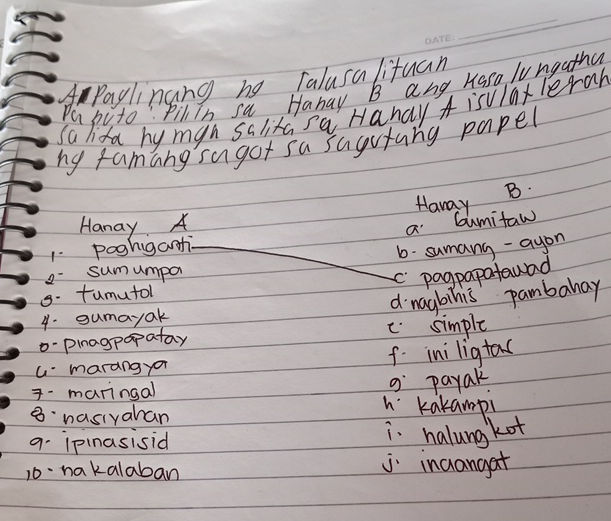 DATE:
A. Paglinang ng Talasalitaan
Panuto. Piliin sa Hanay B ang Kasalungat
salita ng mga salita sa Hanay A isulat
ng tamang sagot sa sagutang papel
Hanay A
1- paghiganti
2- sumumpa
3- tumutol
4- gumayak
5- pinagpapatay
6- marangya
7- maringal
8- nasiyahan
9- ipinasisid
10- nakalaban
Hanay B.
a. Lumitaw
b- sumang-ayon
c- pagpapatawad
d. nagbihis pambahay
e. simple
f- iniligtas
g. payak
h. kakampi
i. nalungkot
j. inaangat